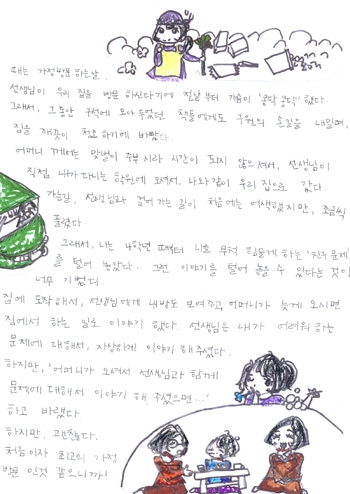 때는 가정방문 하는날.
선생님이 우리 집을 방문 하신다기에 전날 부터 가슴이 '콩닥 콩닥' 했다.
그래서, 그동안 구석에 모아 두었던 책들에게도 구원의 손길을 내밀며,
집을 깨끗이 청소하기에 바빴다.
어머니 께서는 맞벌이 주부시라 시간이 되지 않으셔서, 선생님이
직접 내가 다니는 학원에 오셔서, 나와 같이 우리 집으로 갔다.
가는길, 선생님과 걸어가는 길이 처음에는 어색했지만, 조금씩
풀렸다.
그래서, 나는 4학년 때부터 나를 무척 힘들게 하는 '친구 문제'
를 털어 놓았다. 그런 이야기를 털어 놓을 수 있다는 것이
너무 기뻤다.
집에 도착해서, 선생님에게 내방도 보여주고, 어머니가 늦게 오시면
집에서 하는 일도 이야기 했다. 선생님은 내가 어려워 하는
문제에 대해서, 자상하게 이야기 해주셨다.
하지만, '어머니가 오셔서 선생님과 함께
문제에 대해서 이야기 해 주셨으면...'
하고 바랬다
하지만, 괜찮다.
처음이자 최고의 가정
방문 인것 같으니까!